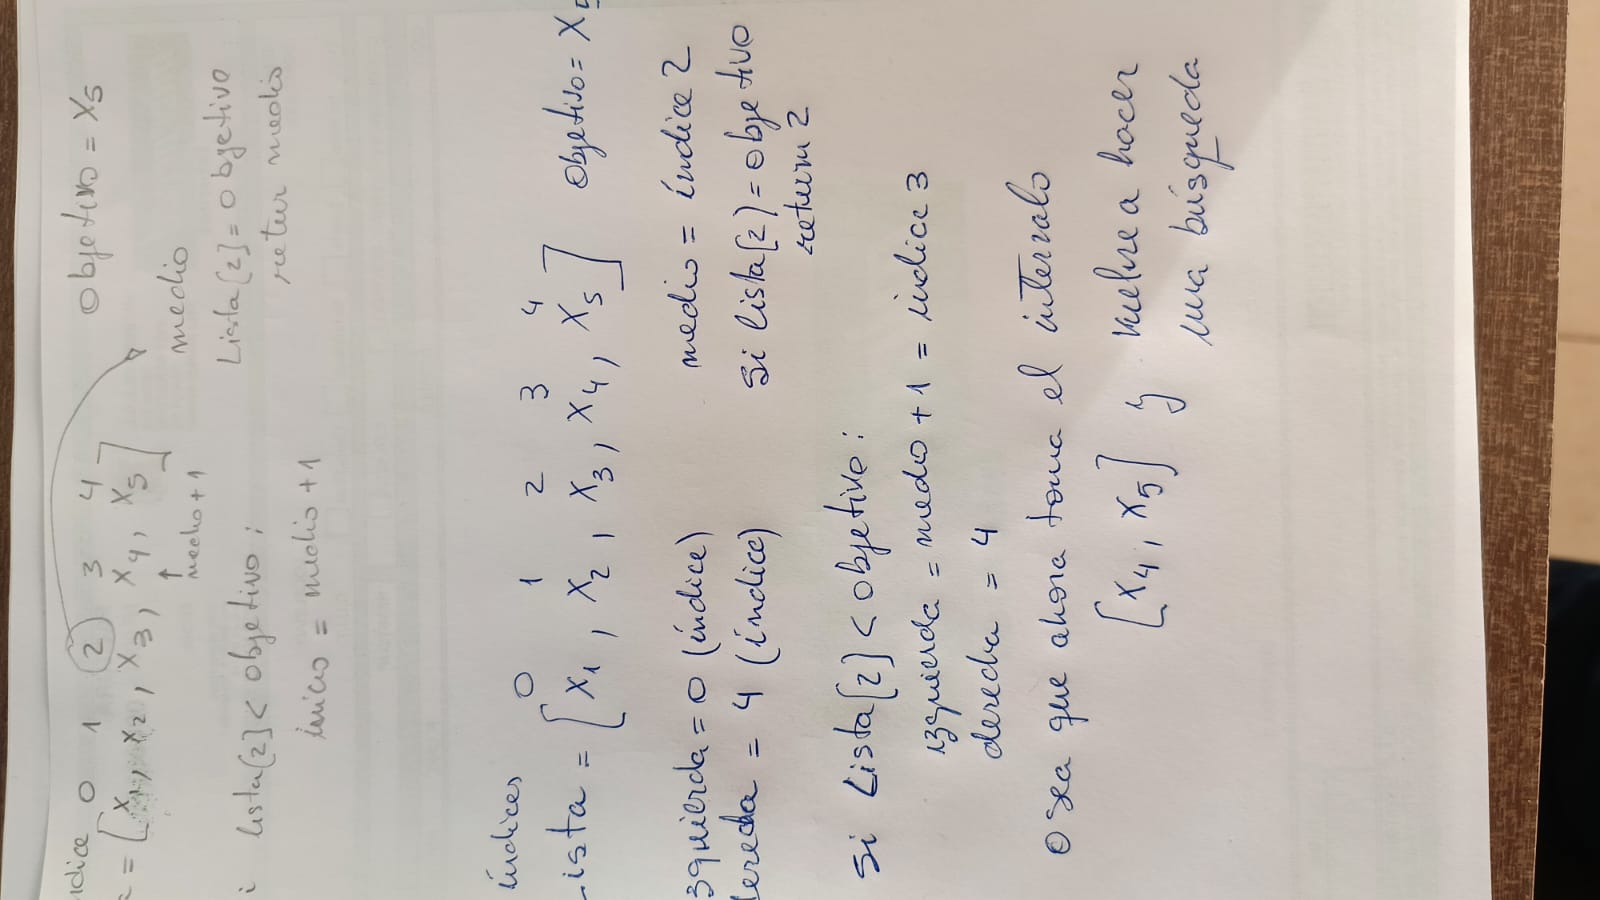 índice 0 1 2 3 4
= [x1, x2, x3, x4, x5] objetivo = x5
medio+1
medio
Lista[2] = objetivo
retur medio
lista[2] < objetivo:
inicio = medio +1
índices 0 1 2 3 4
Lista = [x1, x2, x3, x4, x5] objetivo = x5
izquierda = 0 (índice) medio = índice 2
derecha = 4 (índice) si lista[2] = objetivo
return 2
si Lista[2] < objetivo:
izquierda = medio + 1 = indice 3
derecha = 4
O sea que ahora toma el intervalo
[x4, x5] y vuelve a hacer
una búsqueda